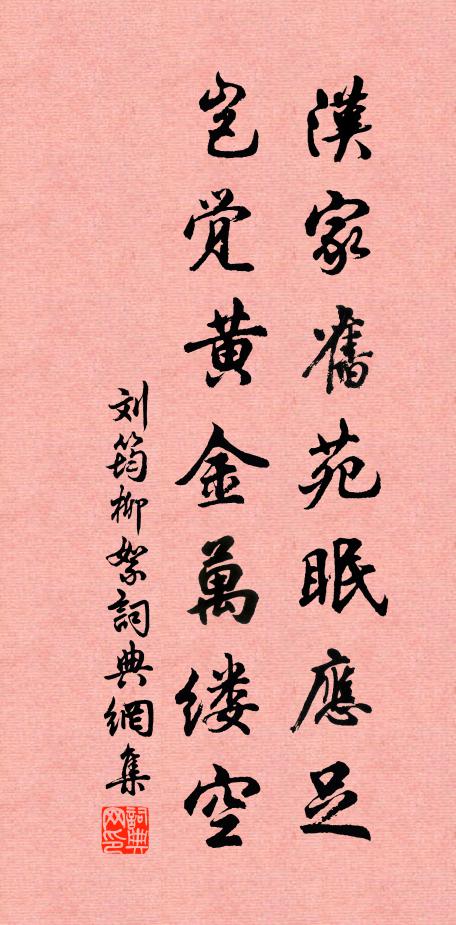 漢家舊苑眠應足
豈覺黄金萬缕空
刘筠柳絮詞典網集
詞典网印